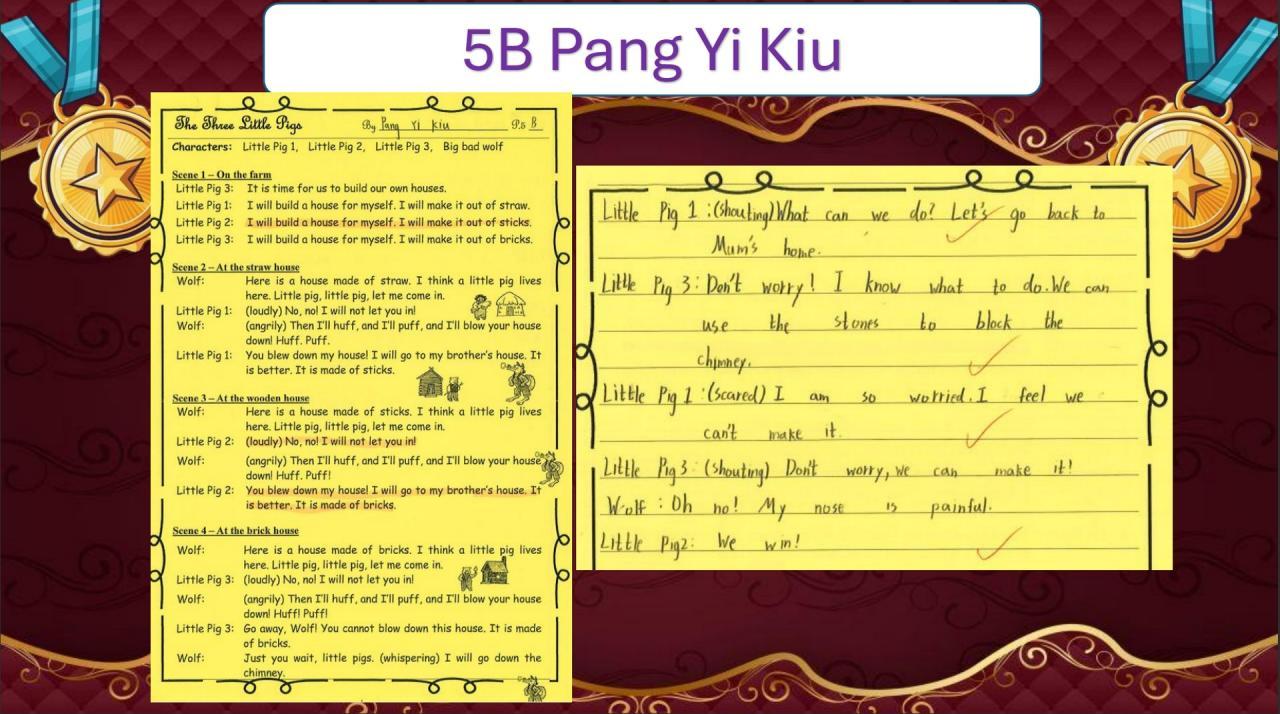 5B Pang Yi Kiu
The Three Little Pigs By Pang Yi kiu P.5 B
Characters: Little Pig 1, Little Pig 2, Little Pig 3, Big bad wolf
Scene 1 – On the farm
Little Pig 3: It is time for us to build our own houses.
Little Pig 1: I will build a house for myself. I will make it out of straw.
Little Pig 2: I will build a house for myself. I will make it out of sticks.
Little Pig 3: I will build a house for myself. I will make it out of bricks.
Scene 2 – At the straw house
Wolf: Here is a house made of straw. I think a little pig lives
here. Little pig, little pig, let me come in.
Little Pig 1: (loudly) No, no! I will not let you in!
Wolf: (angrily) Then I'll huff, and I'll puff, and I'll blow your house
down! Huff. Puff.
Little Pig 1: You blew down my house! I will go to my brother's house. It
is better. It is made of sticks.
Scene 3 – At the wooden house
Wolf: Here is a house made of sticks. I think a little pig lives
here. Little pig, little pig, let me come in.
Little Pig 2: (loudly) No, no! I will not let you in!
Wolf: (angrily) Then I'll huff, and I'll puff, and I'll blow your house
down! Huff. Puff!
Little Pig 2: You blew down my house! I will go to my brother's house. It
is better. It is made of bricks.
Scene 4 – At the brick house
Wolf: Here is a house made of bricks. I think a little pig lives
here. Little pig, little pig, let me come in.
Little Pig 3: (loudly) No, no! I will not let you in!
Wolf: (angrily) Then I'll huff, and I'll puff, and I'll blow your house
down! Huff! Puff!
Little Pig 3: Go away, Wolf! You cannot blow down this house. It is made
of bricks.
Wolf: Just you wait, little pigs. (whispering) I will go down the
chimney.
Little Pig 1 :(shouting)What can we do? Let's go back to
Mum's home.
Little Pig 3: Don't worry! I know what to do.We can
use the stones to block the
chimney.
Little Pig 1 :(scared) I am so worried.I feel we
can't make it.
Little Pig 3: (shouting) Don't worry,we can make it!
Wolf : Oh no! My nose is painful.
Little Pig2: We win!